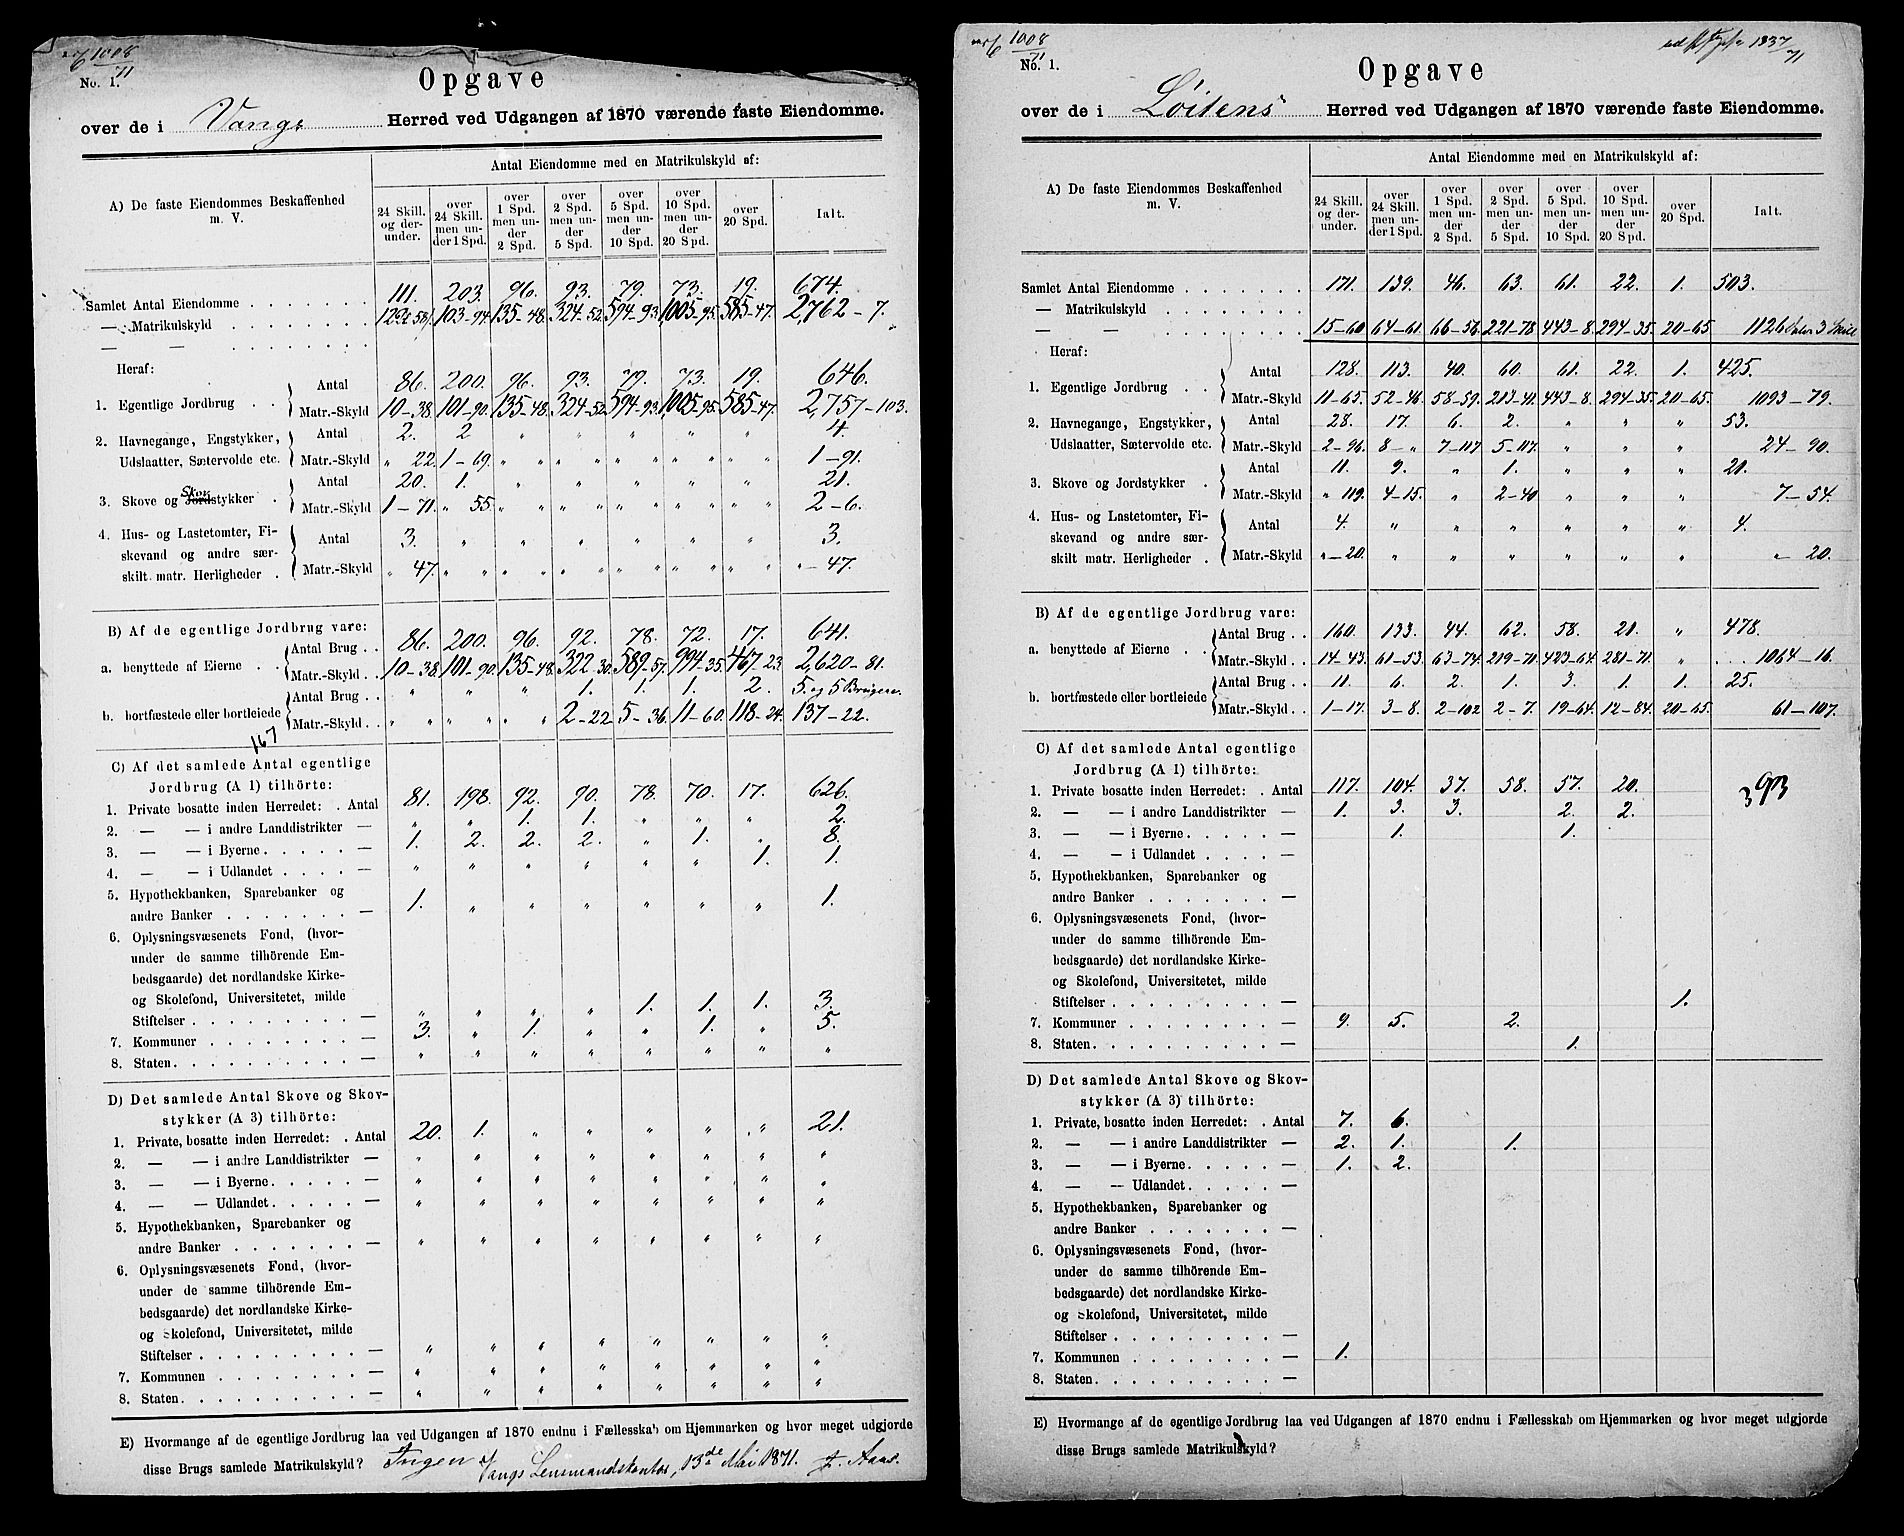 1008
71
No. 1.
Opgave
over de i Vangs Herred ved Udgangen af 1870 værende faste Eiendomme.
A) De faste Eiendommes Beskaffenhed m. V.
Antal Eiendomme med en Matrikulskyld af:
24 Skill. og derunder. | over 24 Skill. men under 1 Spd. | over 1 Spd. men under 2 Spd. | over 2 Spd. men under 5 Spd. | over 5 Spd. men under 10 Spd. | over 10 Spd. men under 20 Spd. | over 20 Spd. | Ialt.
Samlet Antal Eiendomme . . . 111. 203. 96. 93. 79. 73. 19. 674.
— Matrikulskyld . . . 103-94. 135-48. 324-52. 594-93. 1,005-95. 585-47. 2,762-7.
— —
Heraf:
1. Egentlige Jordbrug . . Antal 86. 200. 96. 93. 79. 73. 19. 646.
Matr.-Skyld 10-38. 101-90. 135-48. 324-52. 594-93. 1005-95. 585-47. 2,757-103.
2. Havnegange, Engstykker, Antal 2. 2 " " " " " 4.
Udslaatter, Sætervolde etc. Matr.-Skyld " 22. 1-69. " " " " " " " " " " 1-91.
3. Skove og Jordstykker Skov . Antal 20. 1. " " " " " 21.
Matr.-Skyld 1-71. " 55. " " " " " " " " " " 2-6.
4. Hus- og Lastetomter, Fi-
skevand og andre sær- Antal 3. " " " " " " 3.
skilt matr. Herligheder . Matr.-Skyld " 47. " " " " " " " " " " " " "-47.
B) Af de egentlige Jordbrug vare:
a. benyttede af Eierne . . Antal Brug . . 86. 200. 96. 92. 78. 72. 17. 641.
Matr.-Skyld . . 10-38. 101-90. 135-48. 322-30. 589-57. 994-35. 467-23. 2,620-81.
b. bortfæstede eller bortleiede Antal Brug . . " " " 1. 1. 1. 2. 5. og 5 Brugere.
Matr.-Skyld . . " " " " " " 2-22. 5-36. 11-60. 118-24. 137-22.
167
C) Af det samlede Antal egentlige
Jordbrug (A 1) tilhörte:
1. Private bosatte inden Herredet: . Antal 81. 198. 92. 90. 78. 70. 17. 626.
2. — — i andre Landdistrikter — " " 1. 1. " " " 2.
3. — — i Byerne . . . . . — 1. 2. 2. 2. " 1. " 8.
4. — — i Udlandet . . . . — " " " " " " 1. 1.
5. Hypothekbanken, Sparebanker og
andre Banker . . . . . . . — 1. " " " " " " 1.
6. Oplysningsvæsenets Fond, (hvor-
under de samme tilhörende Em-
bedsgaarde) det nordlandske Kirke-
og Skolefond, Universitetet, milde
Stiftelser . . . . . . . . . — " " " " 1. 1. 1. 3.
7. Kommuner . . . . . . . . — 3. " 1. " " 1. " 5.
8. Staten. . . . . . . . . . — " " " " " " " "
D) Det samlede Antal Skove og Skov-
stykker (A 3) tilhörte:
1. Private, bosatte inden Herredet: . Antal 20. 1. " " " " " 21.
2. — — i andre Landdistrikter — " " " " " " " "
3. — — i Byerne . . . . . — " " " " " " " "
4. — — Udlandet . . . . . — " " " " " " " "
5. Hypothekbanken, Sparebanker og
andre Banker . . . . . . . — " " " " " " " "
6. Oplysningsvæsenets Fond, (hvor-
under de samme tilhörende Em-
bedsgaarde) det nordlandske Kirke-
og Skolefond, Universitetet, milde
Stiftelser . . . . . . . . . — " " " " " " " "
7. Kommunen . . . . . . . . — " " " " " " " "
8. Staten. . . . . . . . . . — " " " " " " " "
E) Hvormange af de egentlige Jordbrug laa ved Udgangen af 1870 endnu i Fællesskab om Hjemmarken og hvor meget udgjorde
disse Brugs samlede Matrikulskyld? Ingen
Vangs Lensmandskontor, 13de Mai 1871. Aaas.
1008
71
1337
71
No. 1.
Opgave
over de i Löitens Herred ved Udgangen af 1870 værende faste Eiendomme.
A) De faste Eiendommes Beskaffenhed m. V.
Antal Eiendomme med en Matrikulskyld af:
24 Skill. og derunder. | over 24 Skill. men under 1 Spd. | over 1 Spd. men under 2 Spd. | over 2 Spd. men under 5 Spd. | over 5 Spd. men under 10 Spd. | over 10 Spd. men under 20 Spd. | over 20 Spd. | Ialt.
Samlet Antal Eiendomme . . . 171. 139. 46. 63. 61. 22. 1. 503.
— Matrikulskyld . . .
— — . . . 15-60 64-61. 66-56. 221-78 443-8. 294-35. 20-65 1126 Daler 3 Skill
Heraf:
1. Egentlige Jordbrug . . Antal 128. 113. 40. 60. 61. 22. 1. 425.
Matr.-Skyld 11-65. 52-46 58-59. 213-41. 443-8. 294-35. 20-65. 1093-79.
2. Havnegange, Engstykker, Antal 28. 17. 6. 2. " " " 53.
Udslaatter, Sætervolde etc. Matr.-Skyld 2-96. 8-" 7-117 5-117. " " " 24-90.
3. Skove og Jordstykker . Antal 11. 9. " 1. " " " 21.
Matr.-Skyld " 119. 4-15. " 2-40 " " " 7-54.
4. Hus- og Lastetomter, Fi-
skevand og andre sær- Antal 4. " " " " " " 4.
skilt matr. Herligheder . Matr.-Skyld "-20. " " " " " " "-20.
B) Af de egentlige Jordbrug vare:
a. benyttede af Eierne . . Antal Brug . . 160. 133. 44. 62. 58. 21. " 478.
Matr.-Skyld . . 14-43. 61-53. 63-74. 219-71. 423-64. 281-71. " 1064-16.
b. bortfæstede eller bortleiede Antal Brug . . 11. 6. 2. 1. 3. 1. 1. 25.
Matr.-Skyld . . 1-17. 3-8. 2-102 2-7. 19-64. 12-84. 20-65. 61-107.
C) Af det samlede Antal egentlige
Jordbrug (A 1) tilhörte:
1. Private bosatte inden Herredet: . Antal 117. 104. 37. 58. 57. 20. 393
2. — — i andre Landdistrikter — 1. 3. 3. 2. 2.
3. — — i Byerne . . . . . — 1. 1.
4. — — i Udlandet . . . . —
5. Hypothekbanken, Sparebanker og
andre Banker . . . . . . . —
6. Oplysningsvæsenets Fond, (hvor-
under de samme tilhörende Em-
bedsgaarde) det nordlandske Kirke-
og Skolefond, Universitetet, milde
Stiftelser . . . . . . . . . — 1.
7. Kommuner . . . . . . . . — 9. 5. 2.
8. Staten. . . . . . . . . . — 1.
D) Det samlede Antal Skove og Skov-
stykker (A 3) tilhörte:
1. Private, bosatte inden Herredet: . Antal 7. 6.
2. — — i andre Landdistrikter — 2. 1. 1.
3. — — i Byerne . . . . . — 1. 2.
4. — — Udlandet . . . . . —
5. Hypothekbanken, Sparebanker og
andre Banker . . . . . . . —
6. Oplysningsvæsenets Fond, (hvor-
under de samme tilhörende Em-
bedsgaarde) det nordlandske Kirke-
og Skolefond, Universitetet, milde
Stiftelser . . . . . . . . . —
7. Kommunen . . . . . . . . — 1.
8. Staten. . . . . . . . . . —
E) Hvormange af de egentlige Jordbrug laa ved Udgangen af 1870 endnu i Fællesskab om Hjemmarken og hvor meget udgjorde
disse Brugs samlede Matrikulskyld?